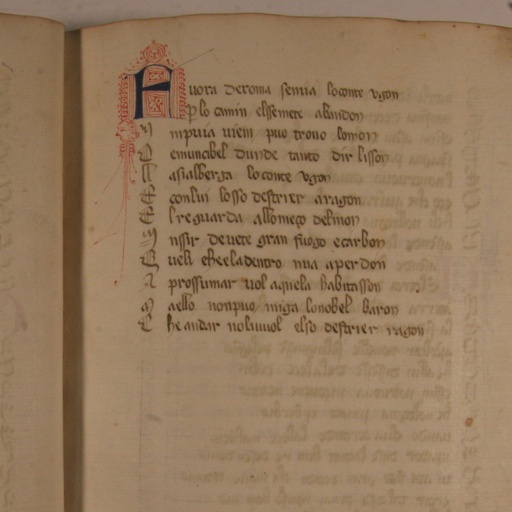 Fuora de roma senua lo conte vgon
Plo camin elsse mete abandon
In puia vien puo trouo lomon
De muncibel dunde tanto dir lisson
Masialberga lo conte vgon
E con lui losso destrier aragon
El reguarda allo meço del mon
Vnssir de uete gran fuogo e carbon
Gueli che e la dentro nua a perdon
Aprossumar uol a quela habitasson
Maello non puo miga lo nobel baron
Che andar no li uuol elso destrier ragon